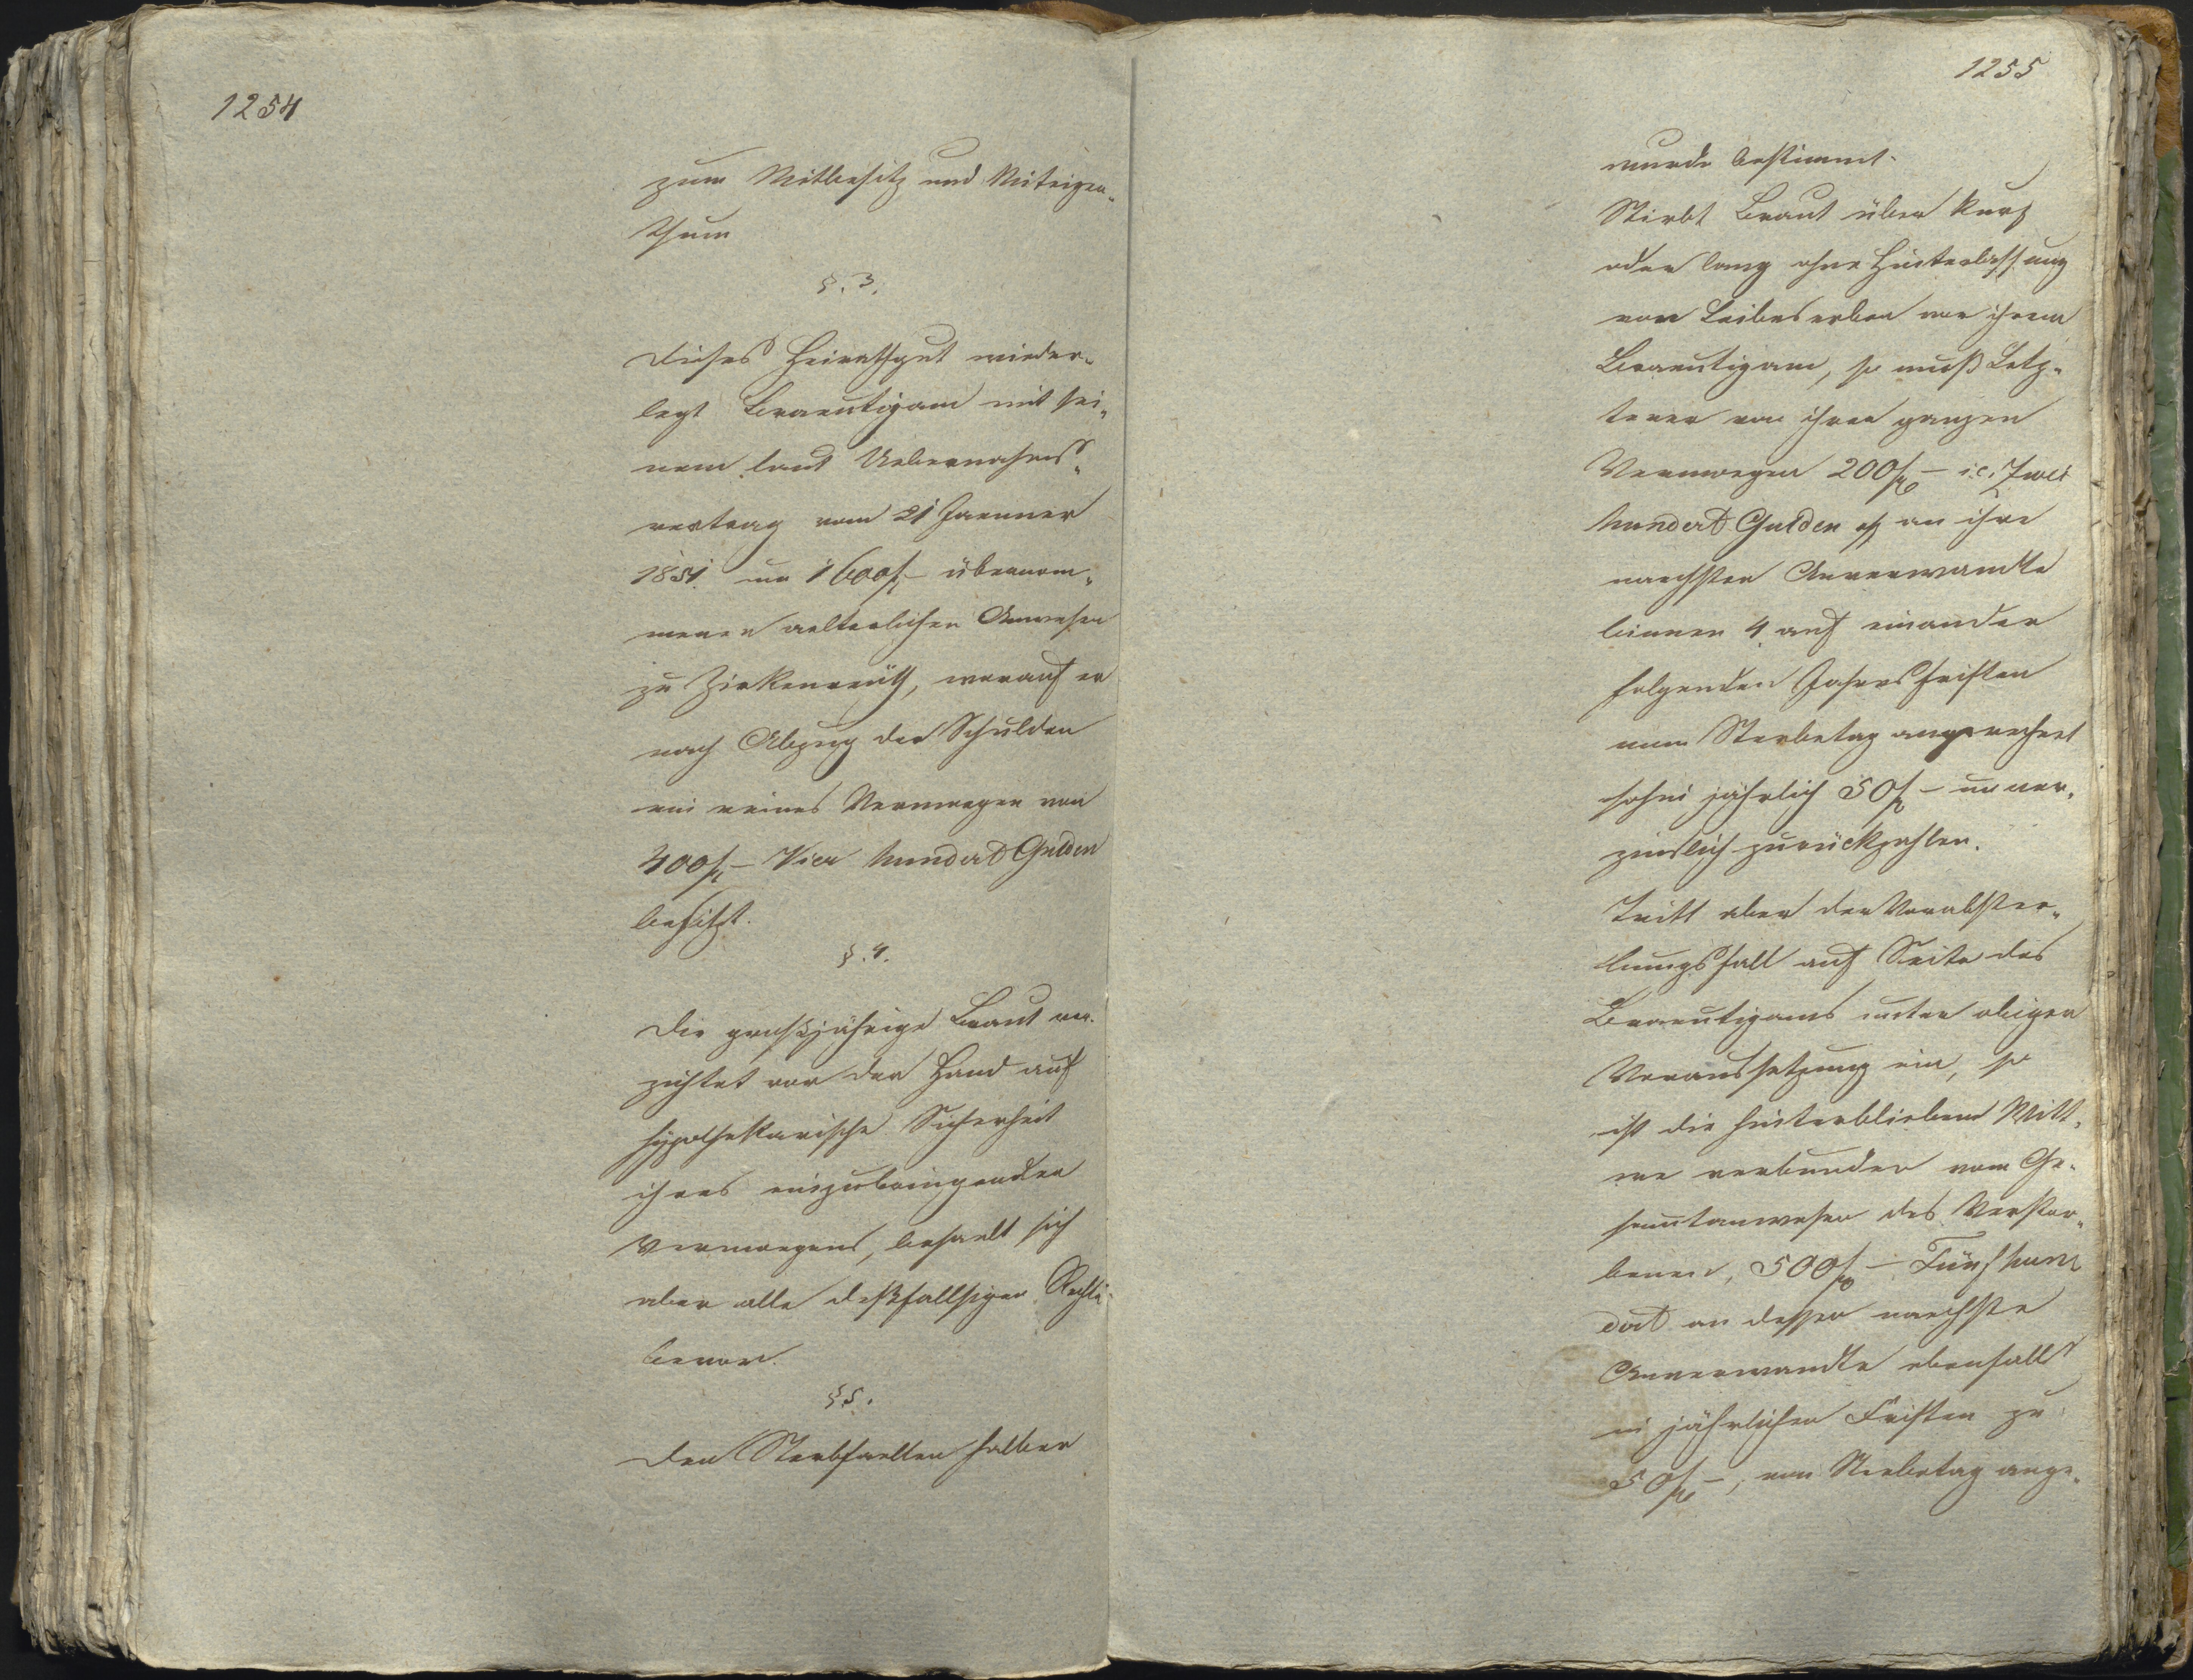 1254
zum Mitbesitz und Miteigen-
thum
§. 3.
Dieses Heirathgut wieder-
legt Braeutigam mit sei-
nem laut Uebernahms-
vertrag vom 21 Jaenner
1851 um 1600 f – übernom-
menen aelterlichen Anwesen
zu Zirkenreuth, worauf er
nach Abzug der Schulden
ein reines Vermoegen von
400 f – Vier hundert Gulden
besitzt.
§. 4.
Die großjährige Braut ver-
zichtet vor der Hand auf
hypothekarische Sicherheit
ihres einzubringenden
Vermoegens, behaelt sich
aber alle deßfallsigen Rechte
bevor.
§ 5.
Den Sterbfaellen halber
1255
wurde bestimmt.
Stirbt Braut über kurz
oder lang ohne Hinterlassung
von Leibeserben vor ihrem
Braeutigam, so muß Letz-
terer von ihren ganzen
Vermoegen 200 f – i.e. Zwei
hundert Gulden an ihre
naechsten Anverwandte
binnen 4 auf einander
folgenden Jahresfristen
vom Sterbetag angerechnet
sohin jährlich 50 f – unver-
zinslich zurückzahlen.
Tritt aber der Vorabster-
bungsfall auf Seite des
Braeutigams unter obiger
Voraussetzung ein, so
ist die hinterbliebene Witt-
we verbunden vom Ge-
samtanwesen des Verstor-
benen, 500 f – Fünf hun-
dert an dessen naechste
Anverwandte ebenfalls
in jährlichen Fristen zu
50 f –, vom Sterbetag ange-